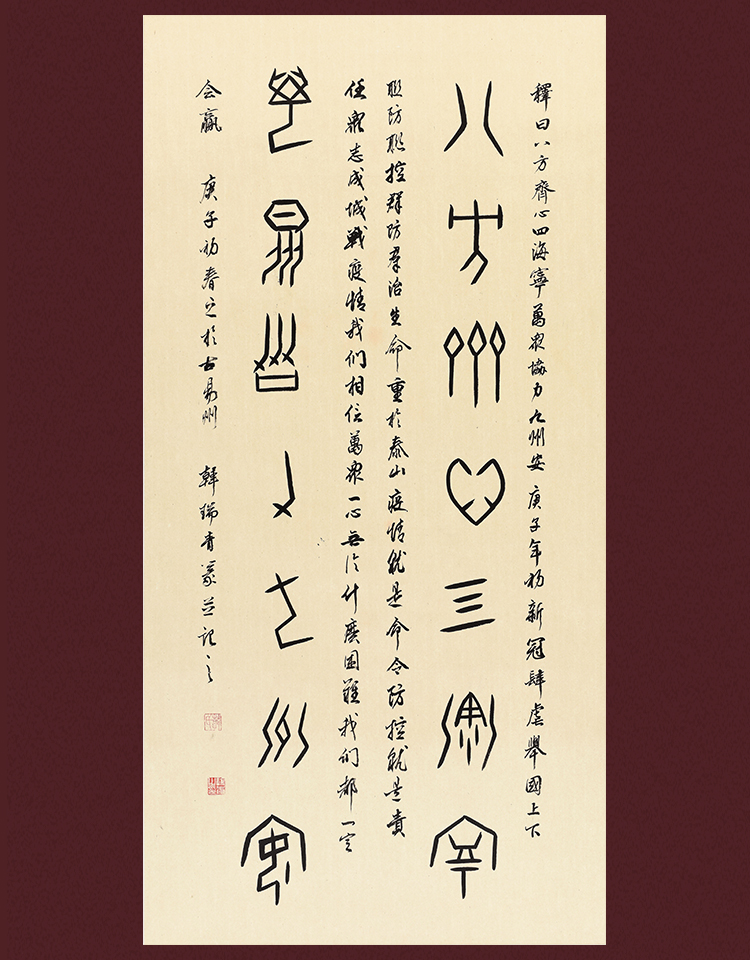 釋曰八方齊心四海寧萬眾協力九州安庚子年初新冠肆虐舉國上下
八方齊心四海寧
聯防聯控群防羣治生命重於泰山疫情就是命令防控就是責
任眾志成城戰疫情我们相信萬眾一心無论什麼困難我们都一定
萬眾協力九州安
会贏 庚子初春之於古易州 韓瑞青篆并記之